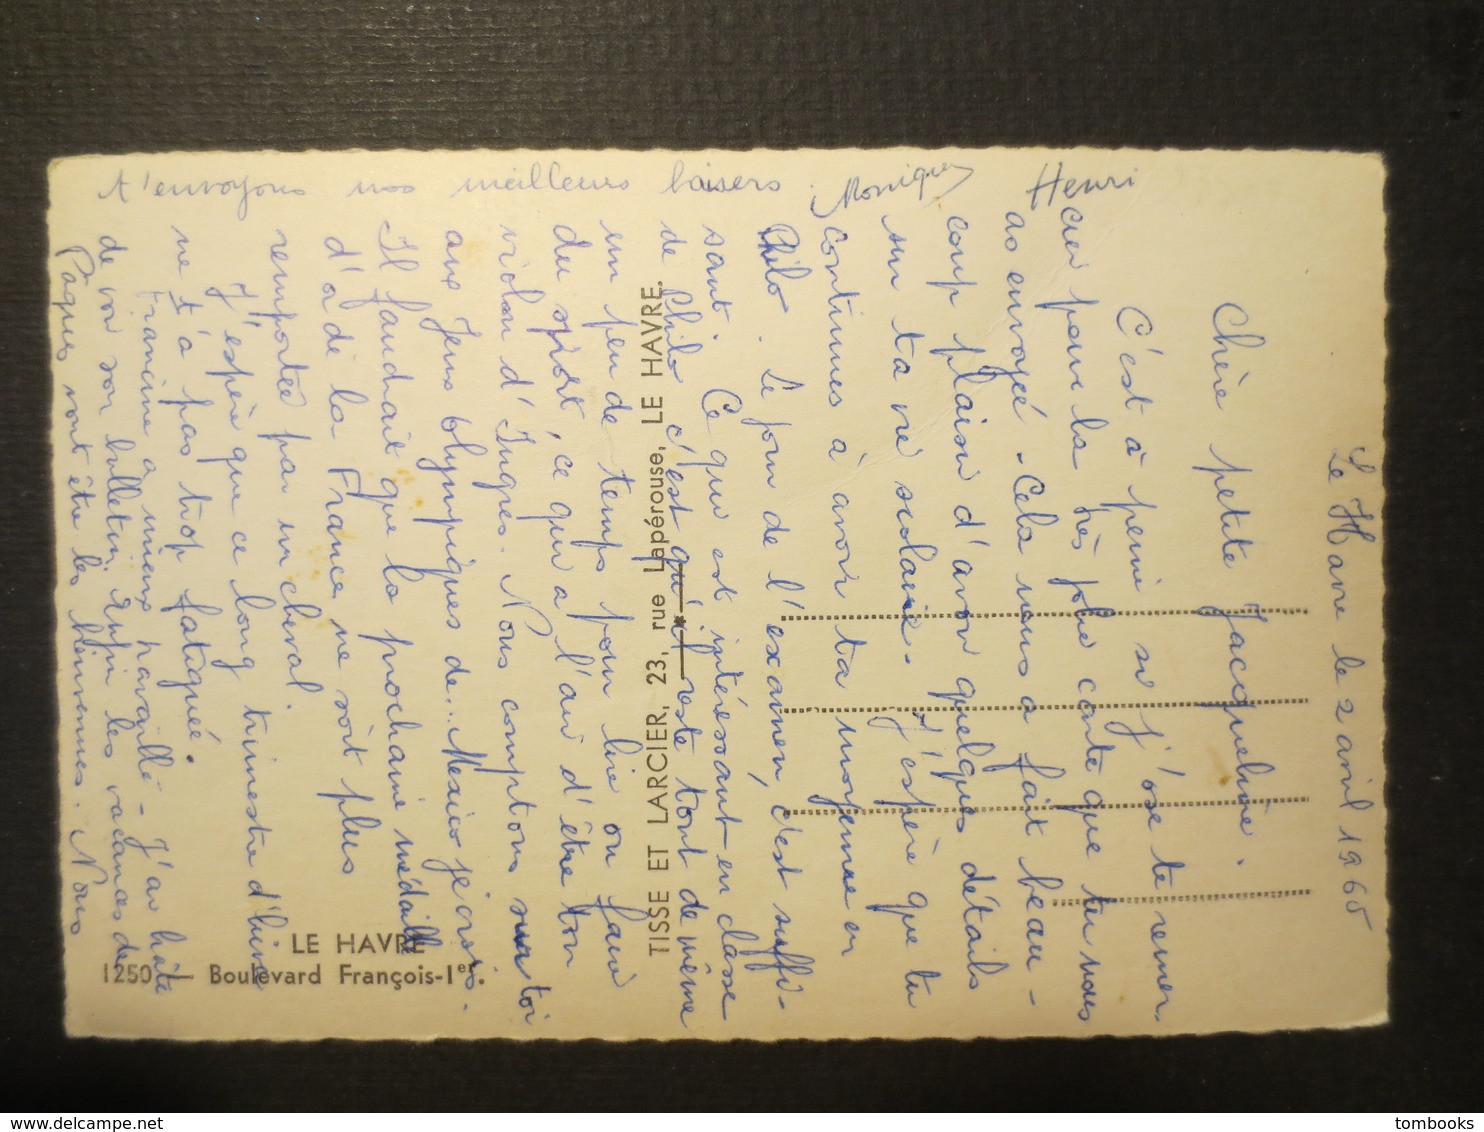 Le Havre le 2 avril 1965
Chère petite Jacqueline.
C'est à peine si j'ose te remer
cier pour la très jolie carte que tu nous
as envoyé - Cela nous a fait beau -
coup plaisir d'avoir quelques détails
sur ta vie scolaire. J'espère que tu
continues à avoir ta moyenne en
Philo. Le jour de l'examen, c'est suffi-
sant. Ce qui est intéressant en classe
de Philo c'est qu'il reste tout de même
un peu de temps pour lire ou faire
du sport, ce qui a l'air d'être ton
violon d'Ingres. Nous comptons sur toi
aux Jeux Olympiques de... Mexico je crois.
Il faudrait que la prochaine médaille
d'or de la France ne soit plus
remportée par un cheval.
J'espère que ce long trimestre d'hiver
ne t'a pas trop fatiguée.
Francine a mieux travaillé - J'ai hâte
de voir son bulletin. Enfin les vacances de
Pâques vont être les bienvenues. Nous
t'envoyons nos meilleurs baisers.
Monique Henri
TISSE ET LARCIER, 23, rue Lapérouse, LE HAVRE.
LE HAVRE
1250 — Boulevard François-Ier.
tombooks